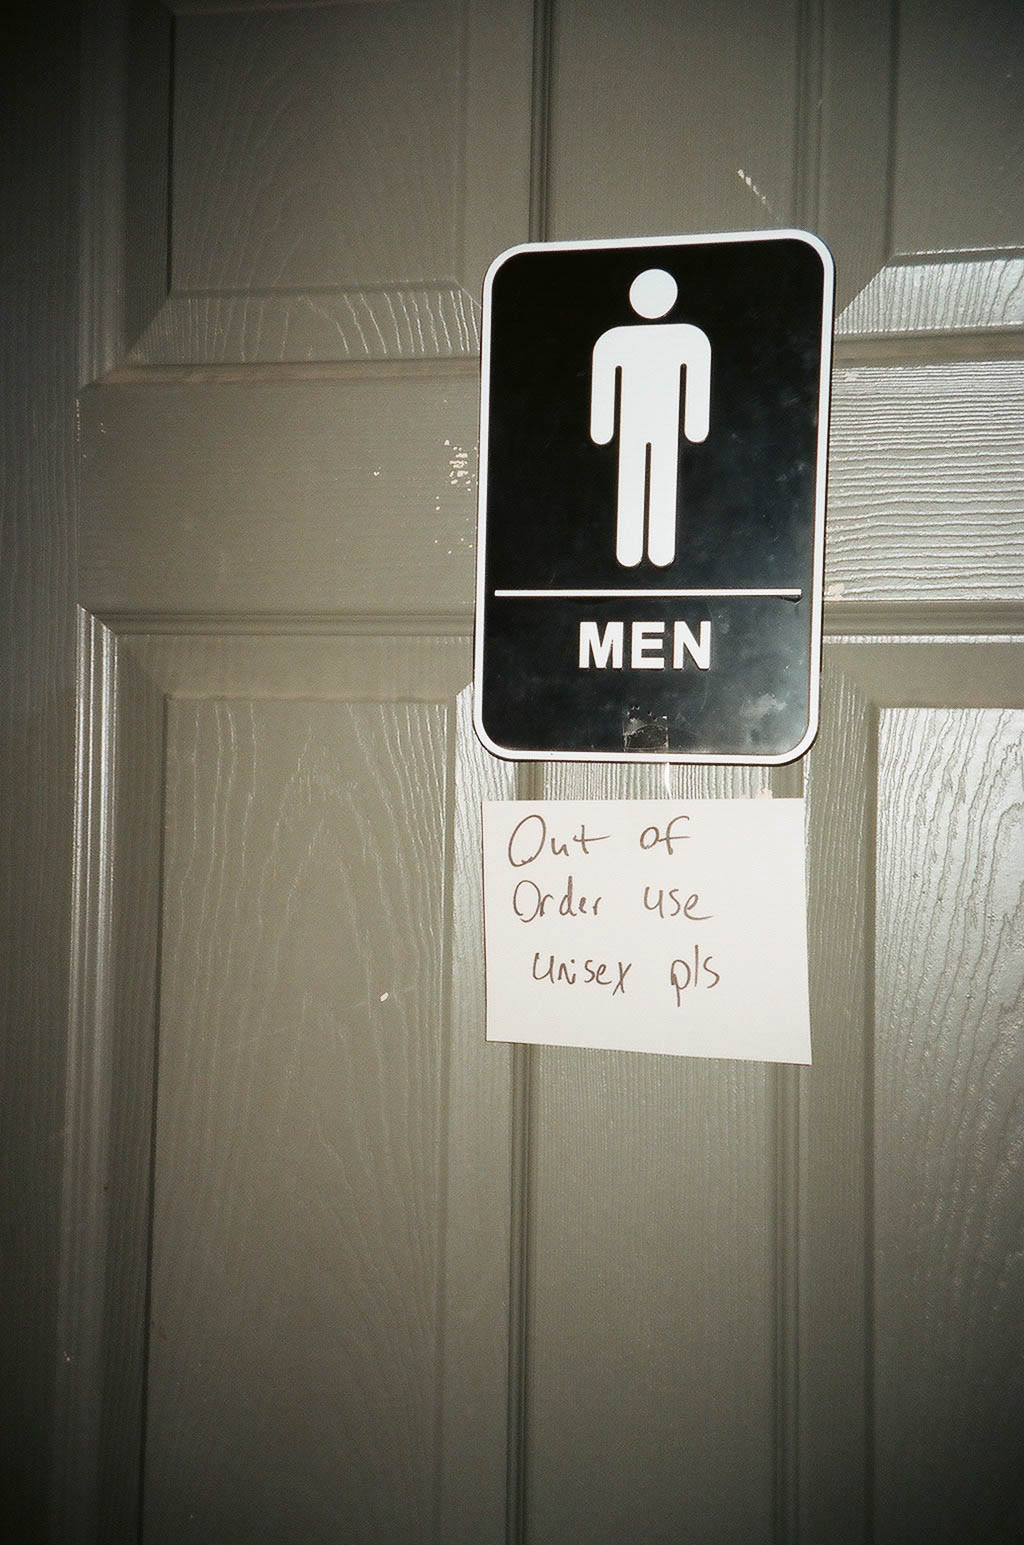 MEN
Out of
Order use
unisex pls